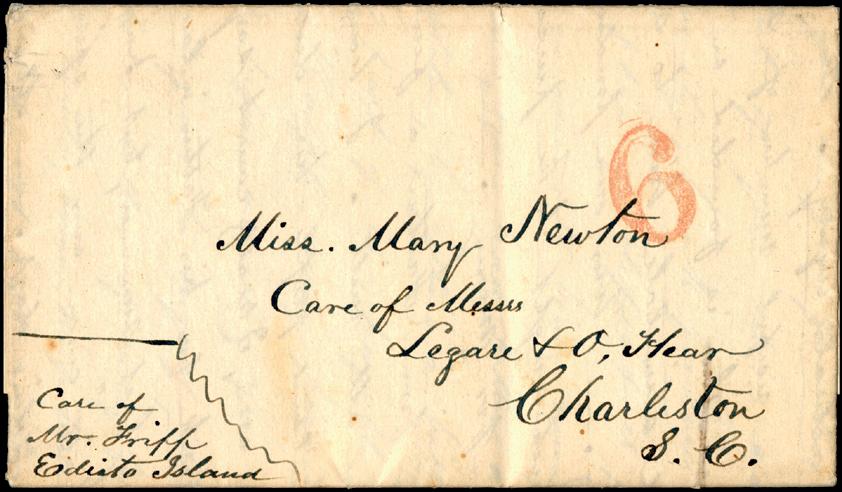 6
Miss. Mary Newton
Care of Messrs
Legare & O, Hear
Charleston
S. C.
Care of
Mr. Fripp
Edisto Island